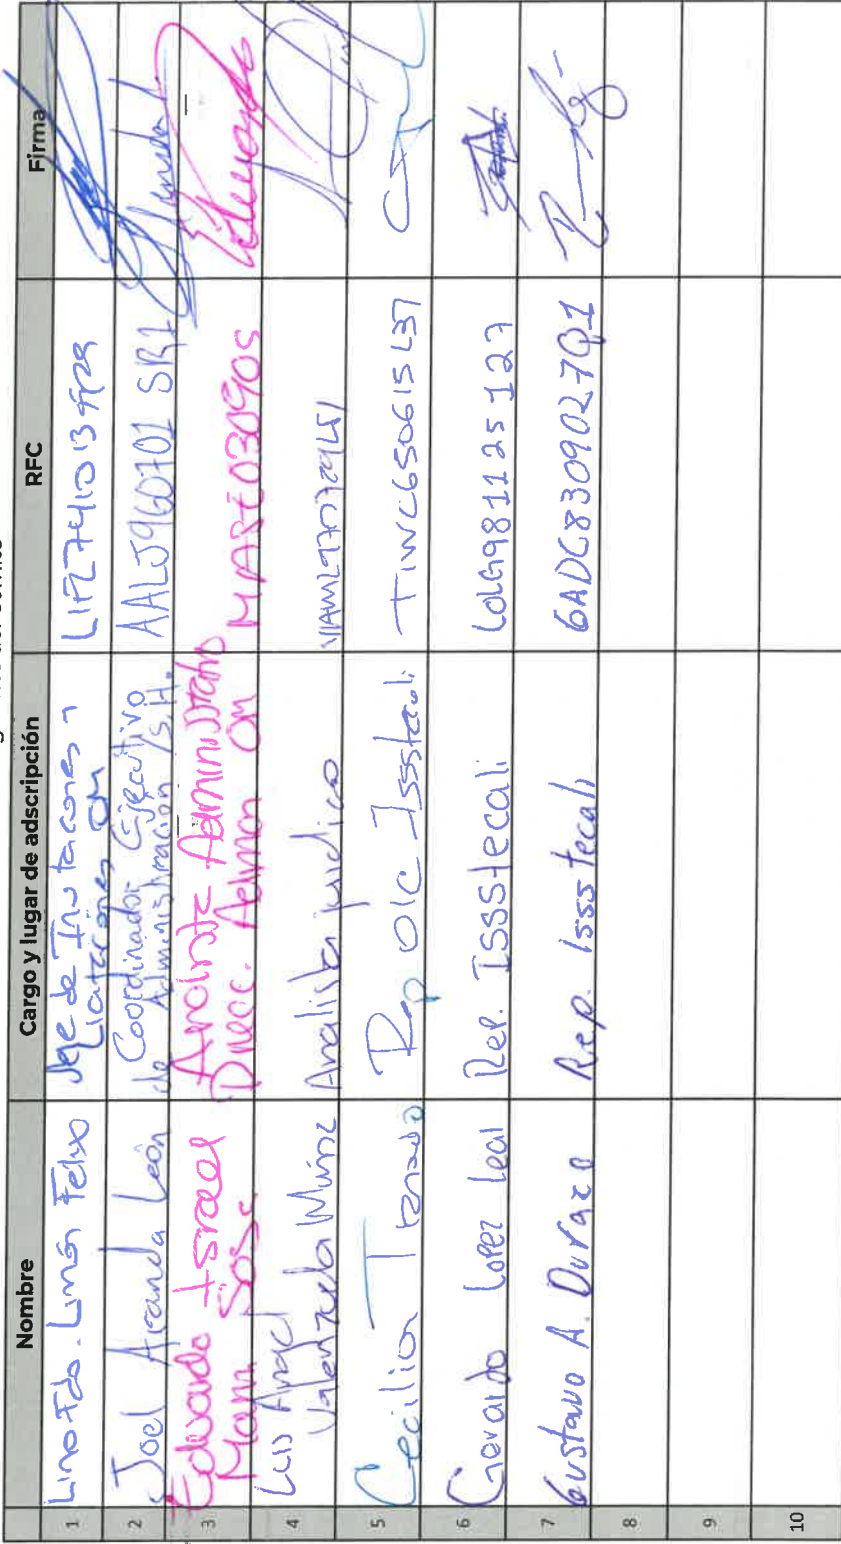 Nombre Cargo y lugar de adscripción RFC Firma
1 Lino Fdo. Limón Felix Jefe de Invitaciones y
Licitaciones OM
2 Joel Aranda León Coordinador Ejecutivo
de Administración /S.H. AALJ960701 SR1
3 Eduardo Israel Analista Administrativo
Marin Sosa Direcc. Admon OM
4 Luis Angel
Valenzuela Muñoz Analista juridico
5 Cecilia Tiznado Rep OIC Issstecali TIWC650615L37
6 Gerardo Lopez Leal Rep. Issstecali LOLG981125127
7 Gustavo A. Durazo Rep. Issstecali GADG8309027Q1
8
9
10